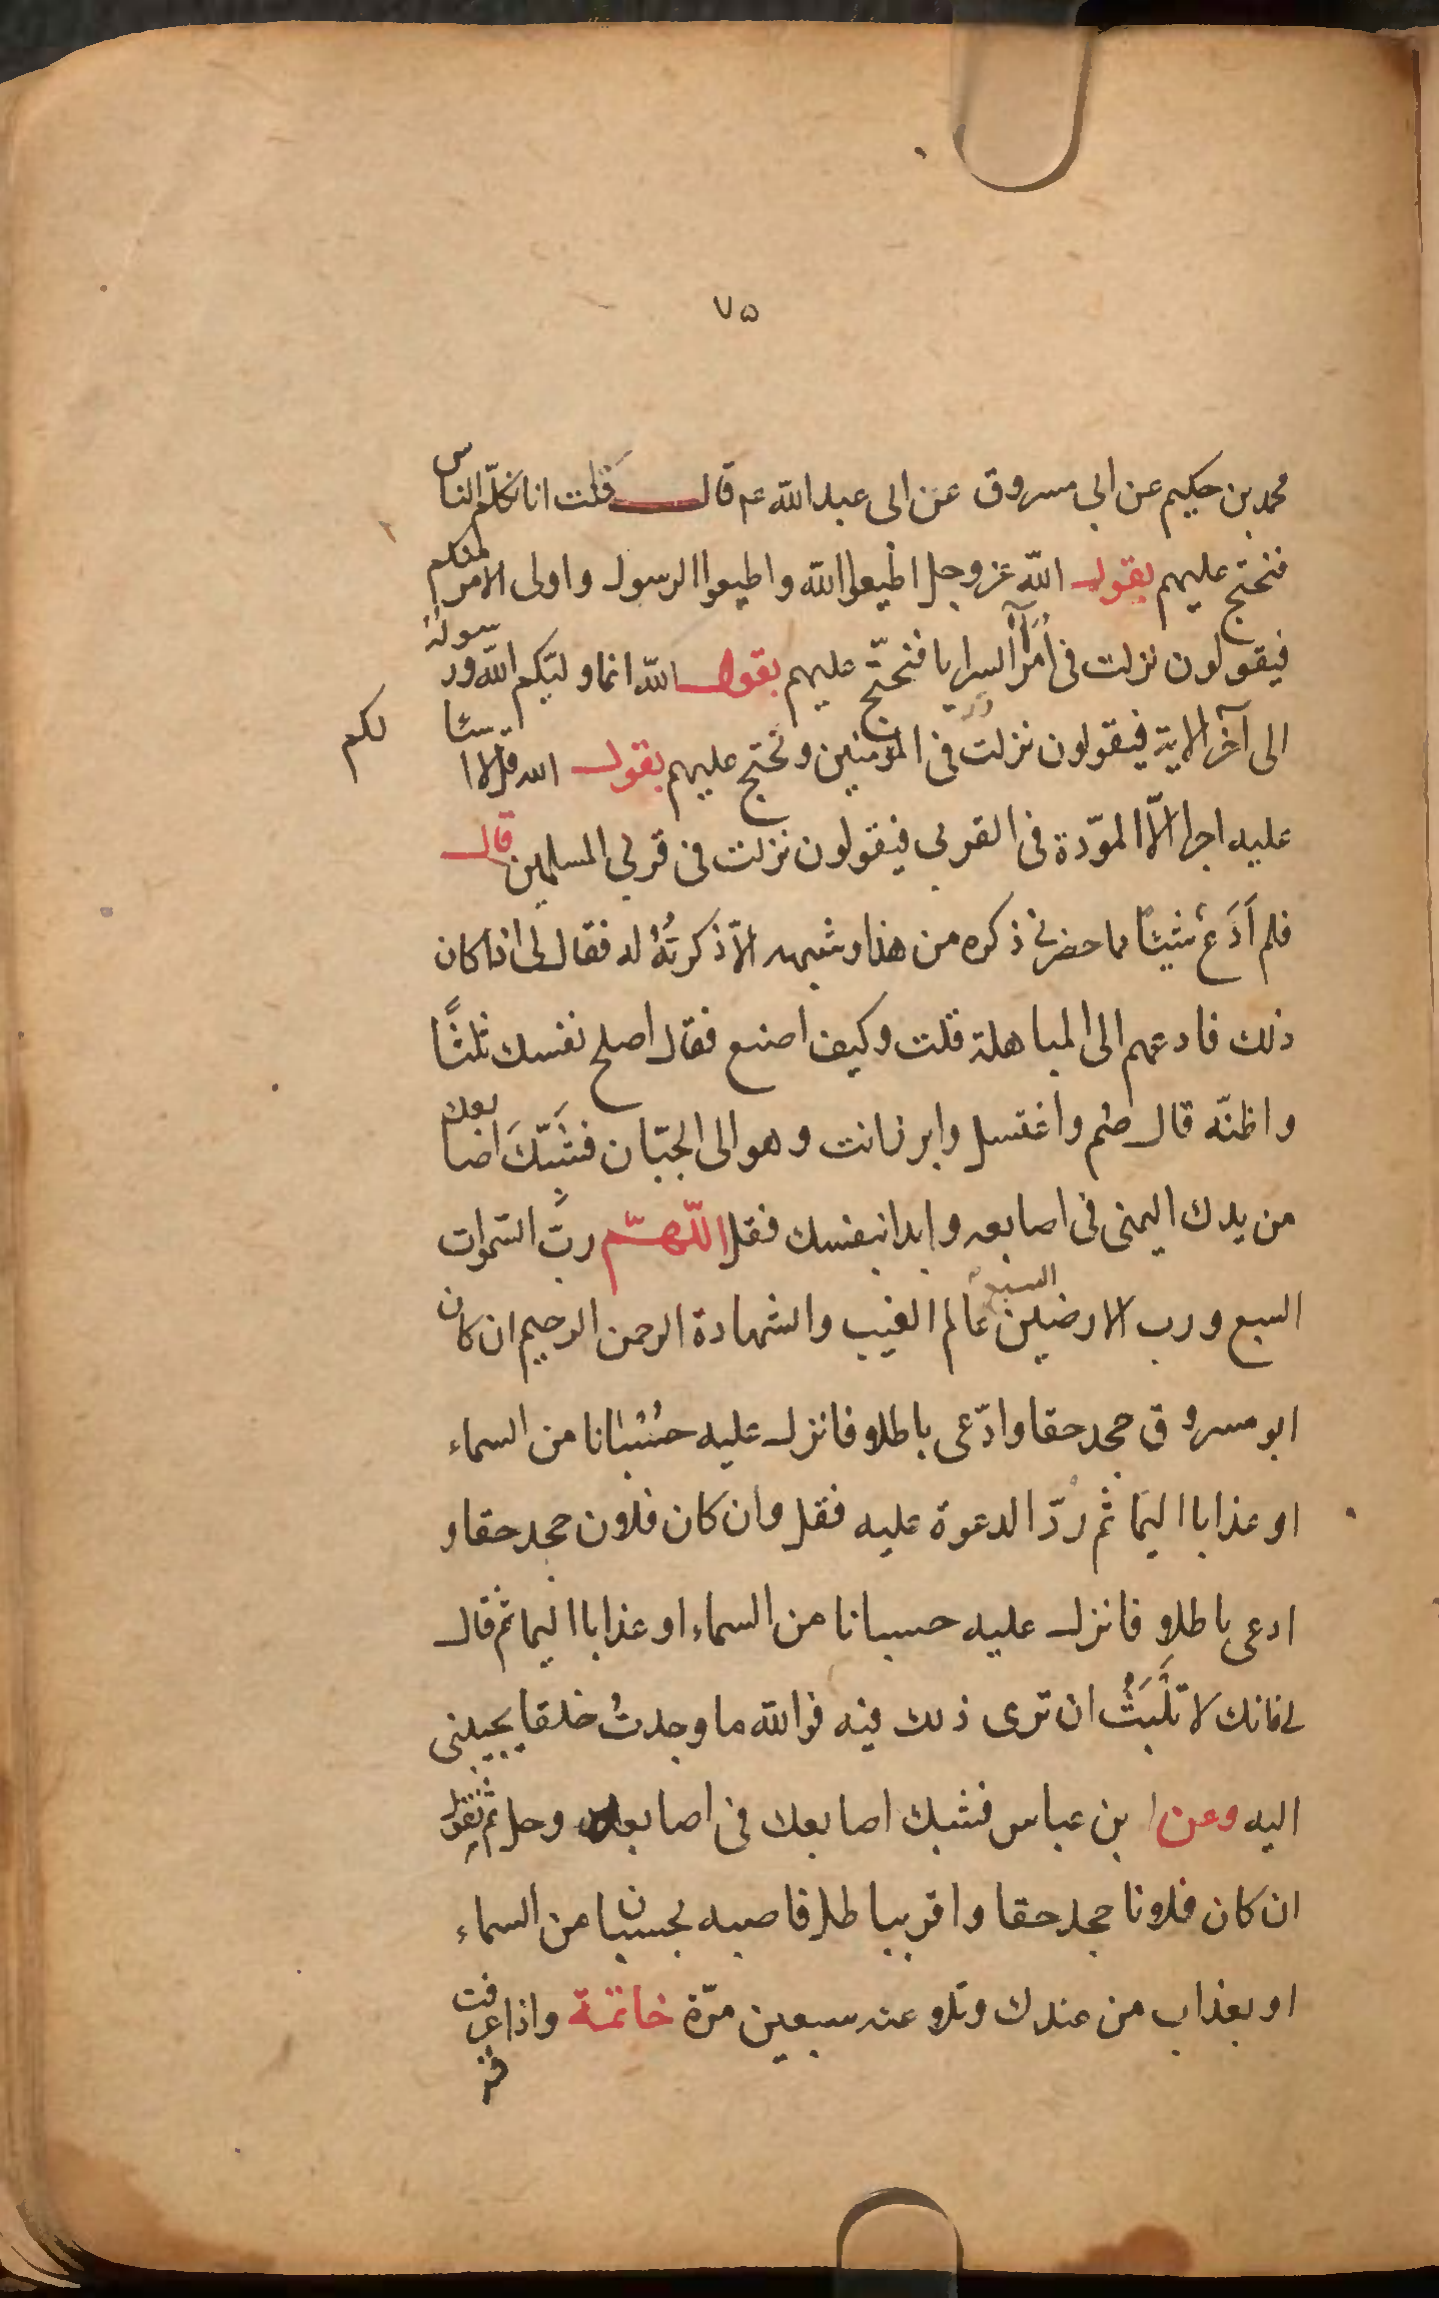 ٧٥
محمد بن حكيم عن ابى مسروق عن ابى عبد الله عم قال قلت انا نكلّم الناس
فنحتج عليهم بقول الله عز وجل اطيعوا الله واطيعوا الرسول واولى الامر منكم
فيقولون نزلت فى اُمَرآء السرايا فنحتجّ عليهم بقول الله انما وليّكم الله ورسوله
الى آخر الاية فيقولون نزلت فى المؤمنين ونحتج عليهم بقول الله قل لا اسئلكم
عليه اجرا الّا المودّة فى القربى فيقولون نزلت فى قربى المسلمين قال
فلم اَدَع شيئا مما حضرنى ذكره من هذا وشبهه الّا ذكرتُهُ له فقال لى اذا كان
ذلك فادعهم الى المباهلة قلت وكيف اصنع فقال اصلح نفسك ثلثًا
واظنّه قال صُم واغتسل وابرز انت وهو الى الجبّان فشَبِّكَ اصابعك
من يدك اليمنى فى اصابعه وابدا بنفسك فقل اللّهمّ ربَّ السّموات
السبع ورب الارضين السبع عالم الغيب والشهادة الرحمن الرحيم ان كان
ابو مسروق جحد حقا وادّعى باطلا فانزل عليه حُسْبانا من السماء
او عذابا اليما ثُم رُدّ الدعوة عليه فقل وان كان فلان جحد حقا و
ادعى باطلا فانزل عليه حسبانا من السماء او عذابا اليما ثم قال
لى فانك لا تَلْبَثُ ان ترى ذلك فيه فوالله ما وجدتُ خلقا يجيبنى
اليه وعن ابن عباس فشبك اصابعك فى اصابعه وحل ثم تقول
ان كان فلانا جحد حقا واقر بباطل فاصبه بحسبان من السماء
او بعذاب من عندك وتلاعنه سبعين مرّة خاتمة واذا عرفت